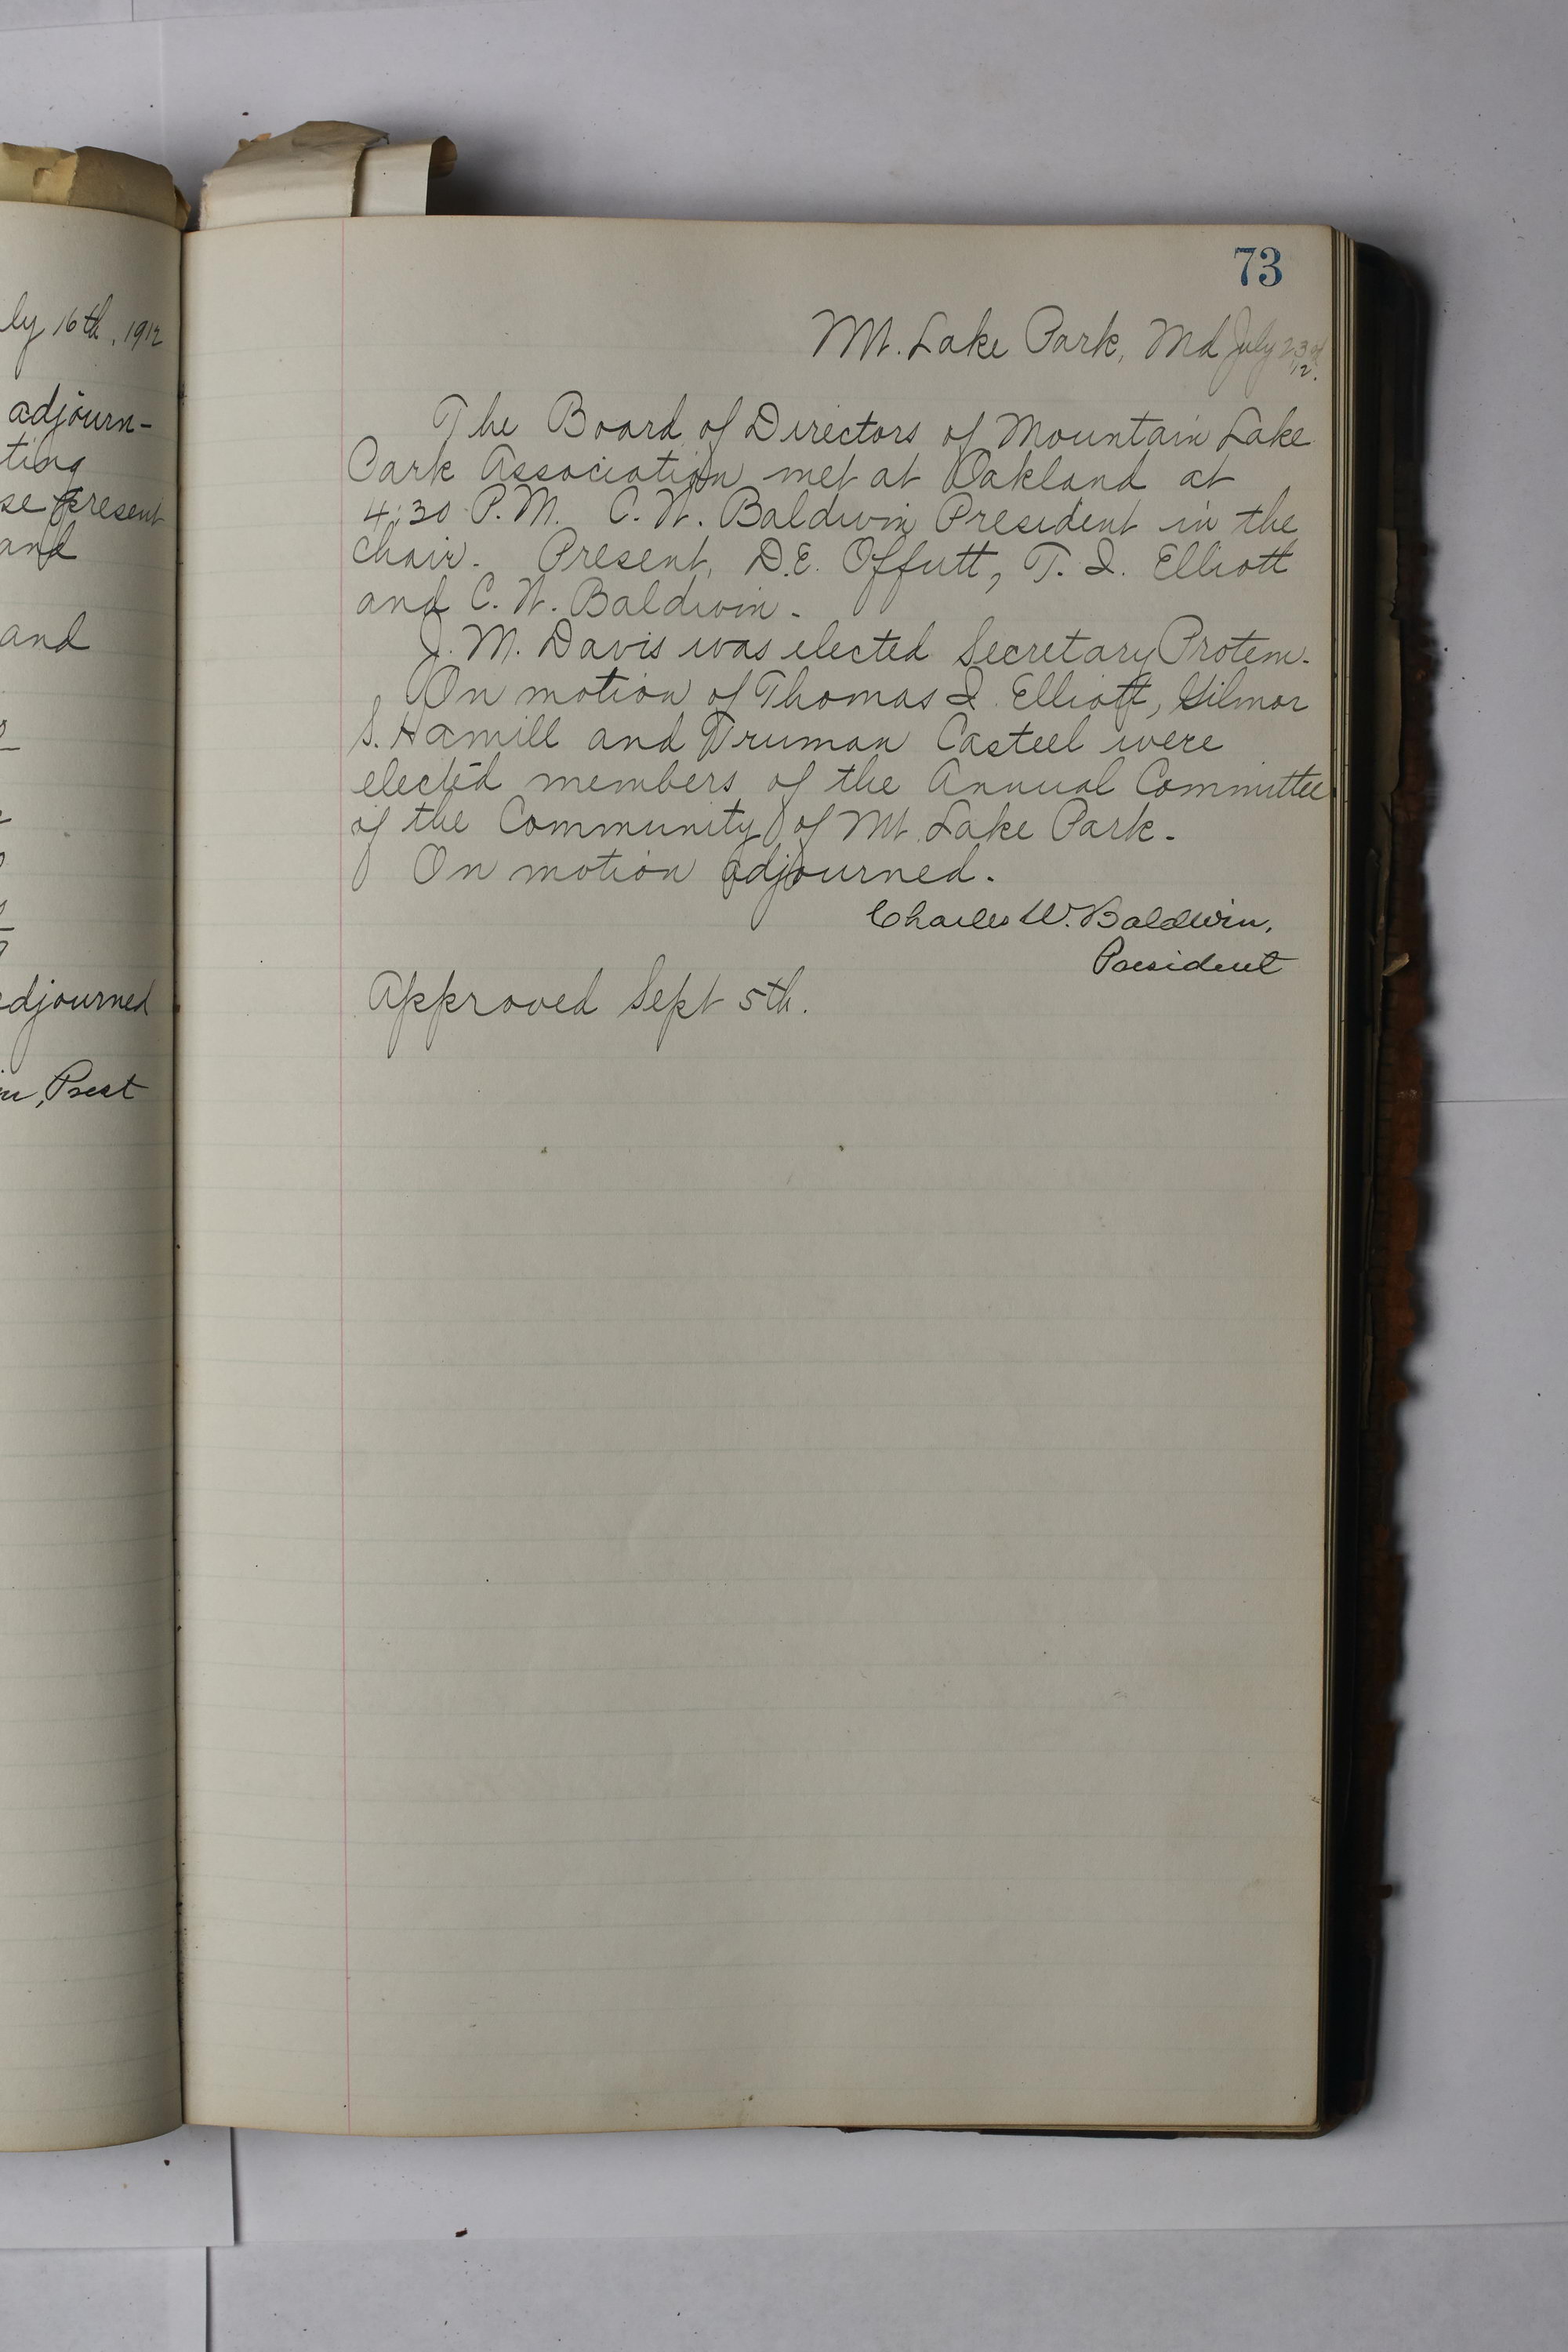 ly 16th, 1912
adjourn-
ting
se present
and
and
adjourned
in, Prest
73
Mt. Lake Park, Md July 23rd
12.
The Board of Directors of Mountain Lake
Park Association met at Oakland at
4:30 P.M. C. W. Baldwin President in the
chair. Present, D.E. Offutt, T. I. Elliott
and C. W. Baldwin.
J. M. Davis was elected Secretary Protem.
On motion of Thomas I. Elliott, Gilmor
S. Hamill and Truman Casteel were
elected members of the Annual Committee
of the Community of Mt Lake Park.
On motion adjourned.
Charles W. Baldwin,
President
Approved Sept 5th.